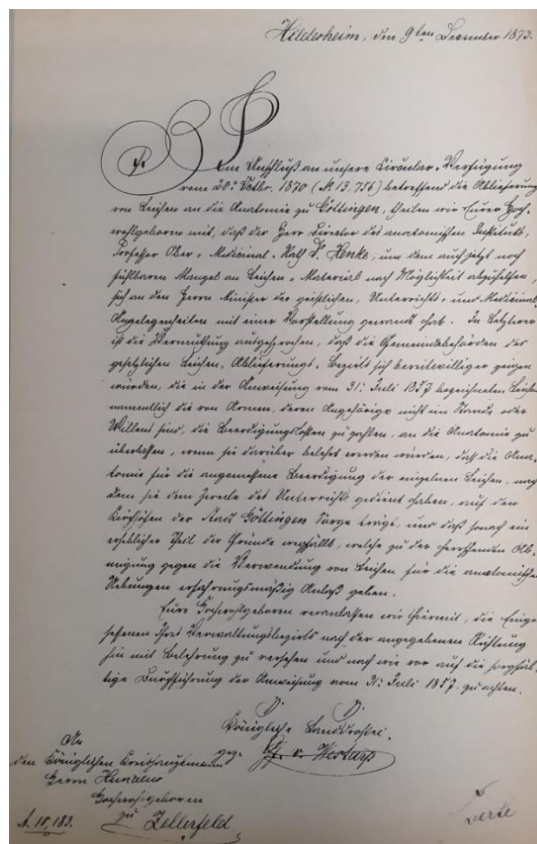 Hildesheim, den 9ten December 1873.
Im Anschluß an unsere Circular-Verfügung
vom 20. Octbr. 1870 (№ 13.756) betreffend die Ablieferung
von Leichen an die Anatomie zu Göttingen, theilen wir Eurer Hoch-
wohlgeboren mit, daß der Herr Director des anatomischen Instituts,
Professor Ober-Medicinal-Rath Dr. Henle, um dem auch jetzt noch
fühlbaren Mangel an Leichen-Material nach Möglichkeit abzuhelfen,
sich an den Herrn Minister der geistlichen, Unterrichts- und Medicinal-
Angelegenheiten mit einer Vorstellung gewandt hat. In Letzterer
ist die Vermuthung ausgesprochen, daß die Gemeindebehörden des
gesetzlichen Leichen-Ablieferungs-Bezirks sich bereitwilliger zeigen
würden, die in der Anweisung vom 31. Juli 1857 bezeichneten Leichen
namentlich die von Armen, deren Angehörige nicht im Stande oder
Willens sind, die Beerdigungskosten zu zahlen, an die Anatomie zu
überlassen, wenn sie darüber belehrt werden würden, daß die Ana-
tomie für die angemessene Beerdigung der einzelnen Leichen, nach-
dem sie dem Zwecke des Unterrichts gedient haben, auf den
Kirchhöfen der Stadt Göttingen Sorge trägt, und daß sonach ein
erheblicher Theil der Gründe wegfällt, welche zu der herrschenden Ab-
neigung gegen die Verwendung von Leichen für die anatomischen
Uebungen erfahrungsmäßig Anlaß geben.
Eure Hochwohlgeboren veranlassen wir hiermit, die Einge-
sessenen Ihres Verwaltungsbezirks nach der angegebenen Richtung
hin mit Belehrung zu versehen und nach wie vor auf die sorgfäl-
tige Durchführung der Anweisung vom 31. Juli 1857 zu achten.
Königliche Landdrostei.
gez.
An
den Königlichen Kreishauptmann
Herrn
Hochwohlgeboren
zu Zellerfeld
A. 18,183.